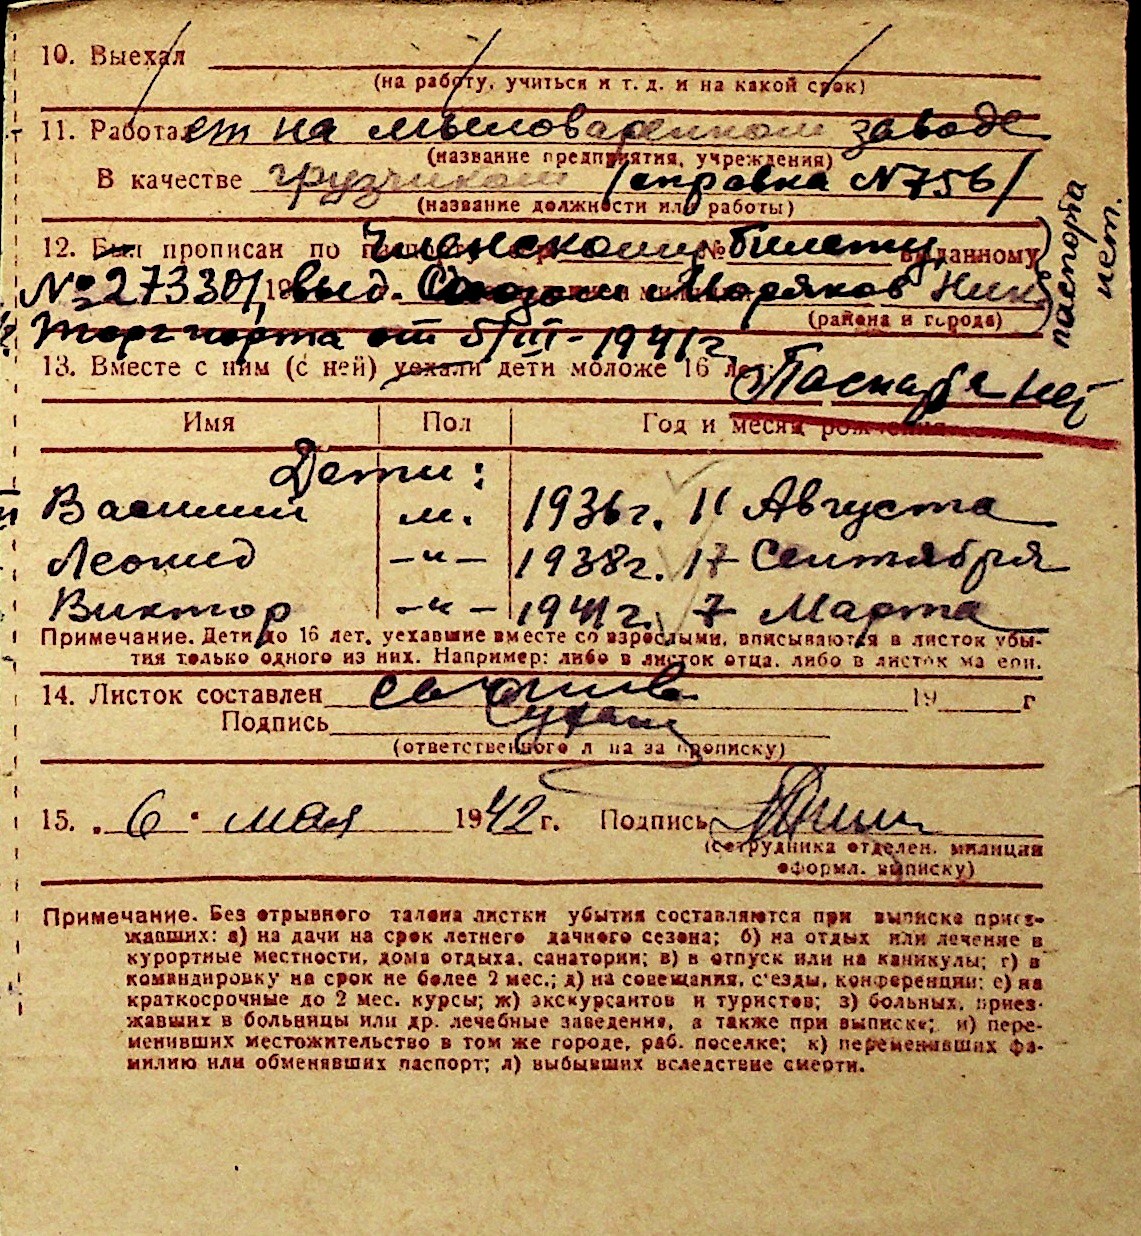 10. Выехал
(на работу, учиться и т. д. и на какой срок)
11. Работает на мыловаренном заводе
(название предприятия, учреждения)
В качестве грузчиком /справка №756/
(название должности или работы)
12. Был прописан по Членскому № билету, выданному
№ 27330/, 19 выд. Союзом Моряков Ник.
(района и города)
Торгпорта от 5/III - 1941 г.
паспорта нет.
13. Вместе с ним (с ней) уехали дети моложе 16 лет:
Паспорта нет
Имя Пол Год и месяц рождения
Дети:
Василий м. 1936 г. 11 Августа
Леонид –"– 1938 г. 17 Сентября
Виктор –"– 1941 г. 7 Марта
Примечание. Дети до 16 лет, уехавшие вместе со взрослыми, вписываются в листок убы-
тия только одного из них. Например: либо в листок отца, либо в листок матери.
14. Листок составлен 19 г
Подпись
(ответственного лица за прописку)
15. „ 6 " мая 1942 г. Подпись
(сотрудника отделен. милиции
оформл. выписку)
Примечание. Без отрывного талона листки убытия составляются при выписке приез-
жавших: а) на дачи на срок летнего дачного сезона; б) на отдых или лечение в
курортные местности, дома отдыха, санатории; в) в отпуск или на каникулы; г) в
командировку на срок не более 2 мес.; д) на совещания, с'езды, конференции; е) на
краткосрочные до 2 мес. курсы; ж) экскурсантов и туристов; з) больных, приез-
жавших в больницы или др. лечебные заведения, а также при выписке; и) пере-
менивших местожительство в том же городе, раб. поселке; к) переменивших фа-
милию или обменявших паспорт; л) выбывших вследствие смерти.